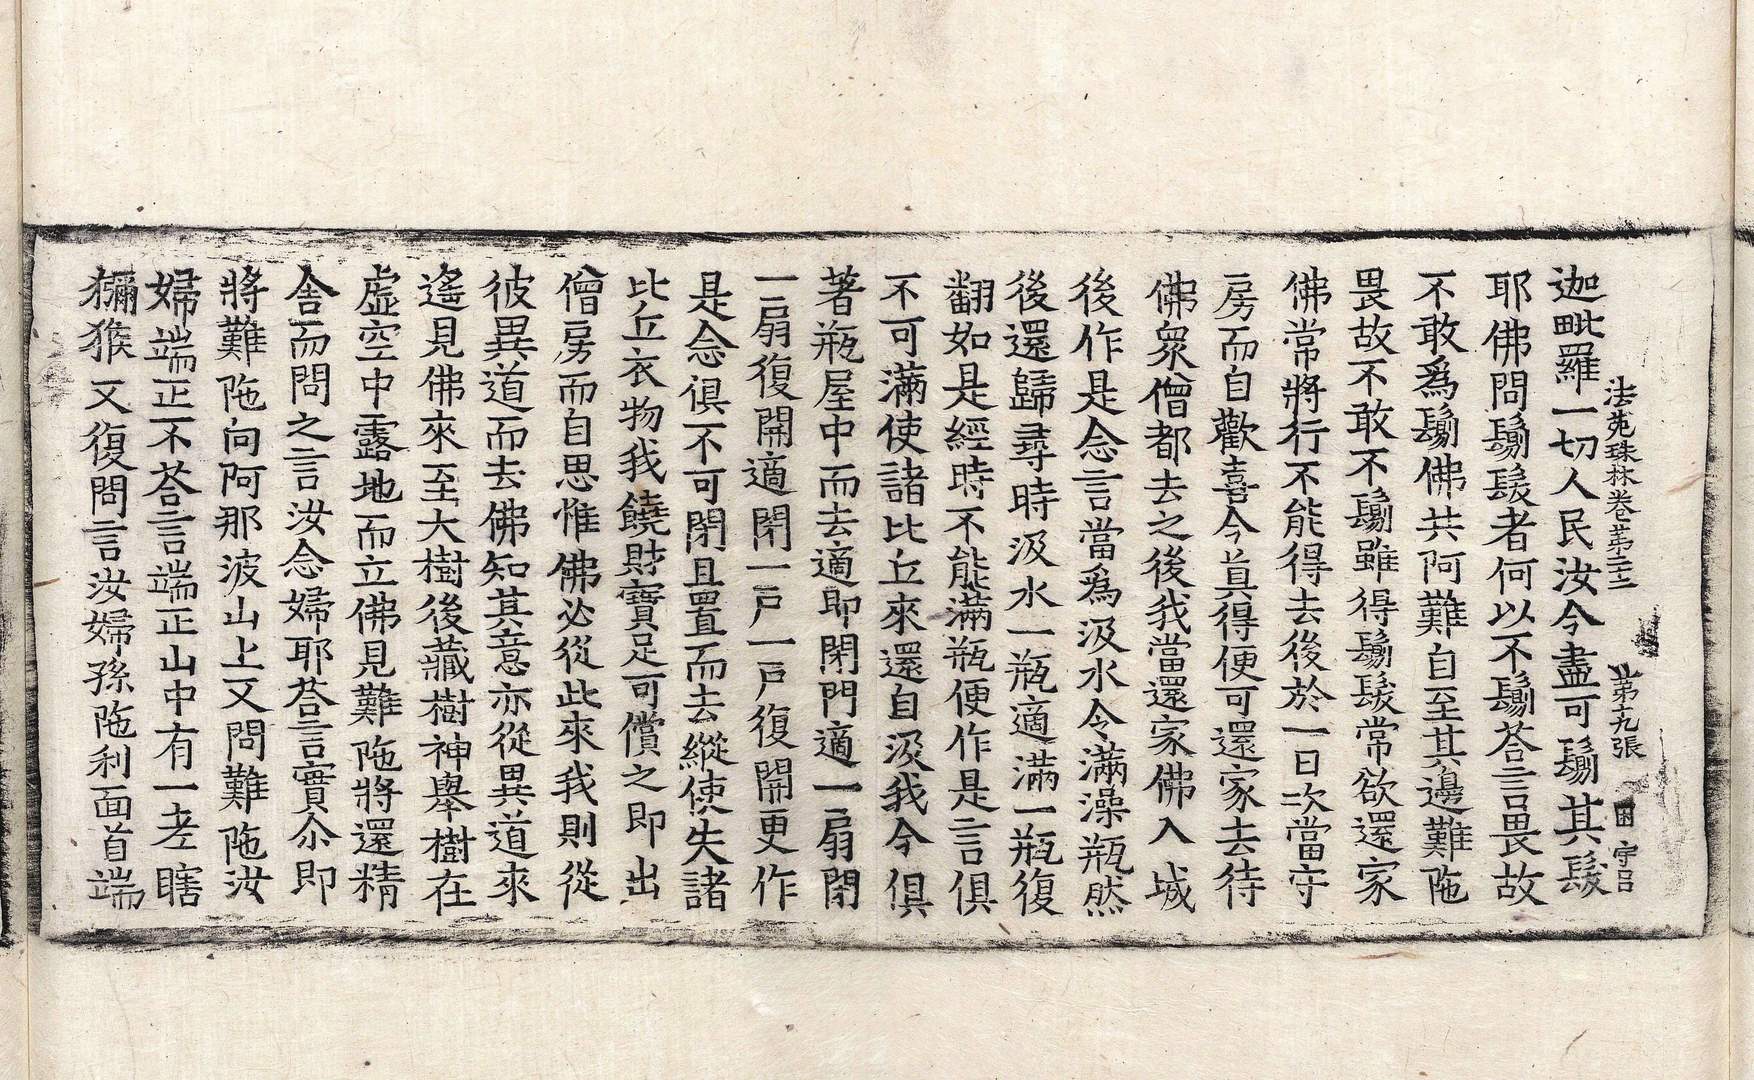 法苑珠林卷第二十二 第十九張 困 守呂
迦毗羅一切人民汝今盡可鬀其髮
耶佛問鬀髮者何以不鬀荅言畏故
不敢爲鬀佛共阿難自至其邊難陁
畏故不敢不鬀雖得鬀髮常欲還家
佛常將行不能得去後於一日次當守
房而自歡喜今真得便可還家去待
佛衆僧都去之後我當還家佛入城
後作是念言當爲汲水令滿澡瓶然
後還歸尋時汲水一瓶適滿一瓶復
翻如是經時不能滿瓶便作是言俱
不可滿使諸比丘來還自汲我今俱
著瓶屋中而去適即閉門適一扇閉
一扇復開適閉一戶一戶復開更作
是念俱不可閉且置而去縱使失諸
比丘衣物我饒財寶足可償之即出
僧房而自思惟佛必從此來我則從
彼異道而去佛知其意亦從異道來
遙見佛來至大樹後藏樹神舉樹在
虛空中露地而立佛見難陁將還精
舍而問之言汝念婦耶荅言實尒即
將難陁向阿那波山上又問難陁汝
婦端正不荅言端正山中有一老瞎
獼猴又復問言汝婦孫陁利面首端